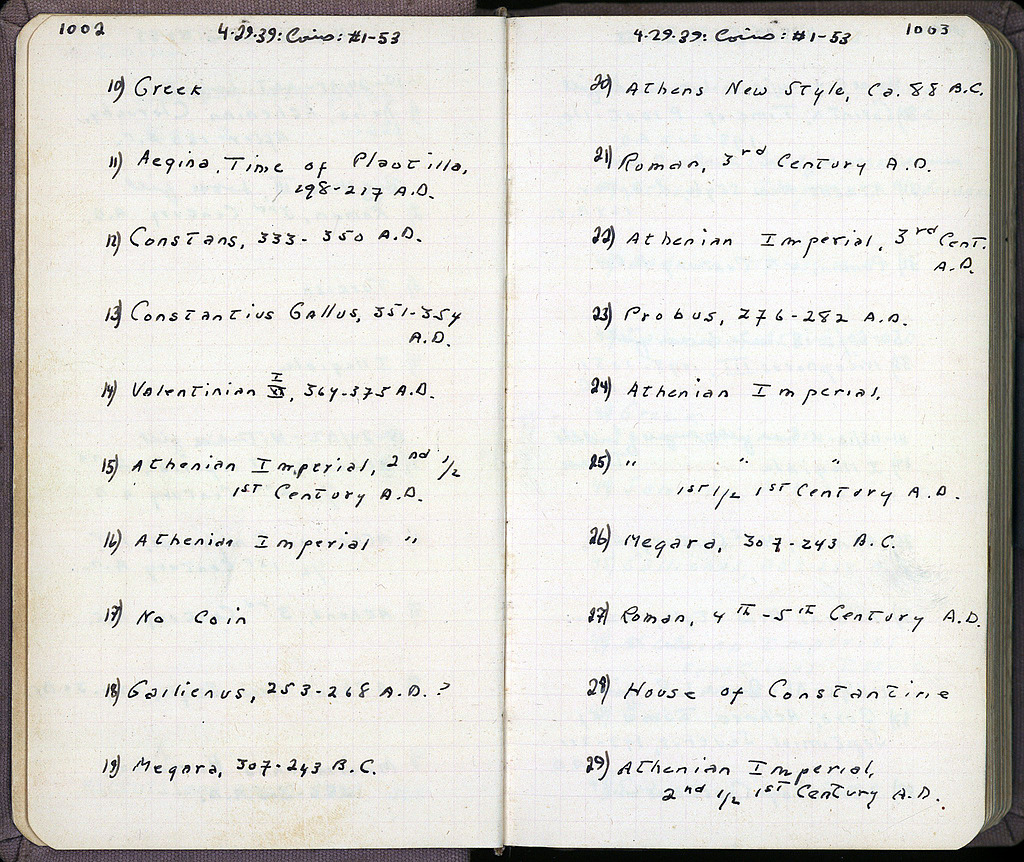 1002
4-29-39: Coins: #1-53
10) Greek
11) Aegina, Time of Plautilla,
198-217 A.D.
12) Constans, 333-350 A.D.
13) Constantius Gallus, 351-354
A.D.
14) Valentinian I, 364-375 A.D.
15) Athenian Imperial, 2nd 1/2
1st Century A.D.
16) Athenian Imperial "
17) No Coin
18) Gallienus, 253-268 A.D. ?
19) Megara, 307-243 B.C.
1003
4-29-39: Coins: #1-53
20) Athens New Style, Ca. 88 B.C.
21) Roman, 3rd Century A.D.
22) Athenian Imperial, 3rd Cent.
A.D.
23) Probus, 276-282 A.D.
24) Athenian Imperial,
25) " " "
1st 1/2 1st Century A.D.
26) Megara, 307-243 B.C.
27) Roman, 4th-5th Century A.D.
28) House of Constantine
29) Athenian Imperial,
2nd 1/2 1st Century A.D.